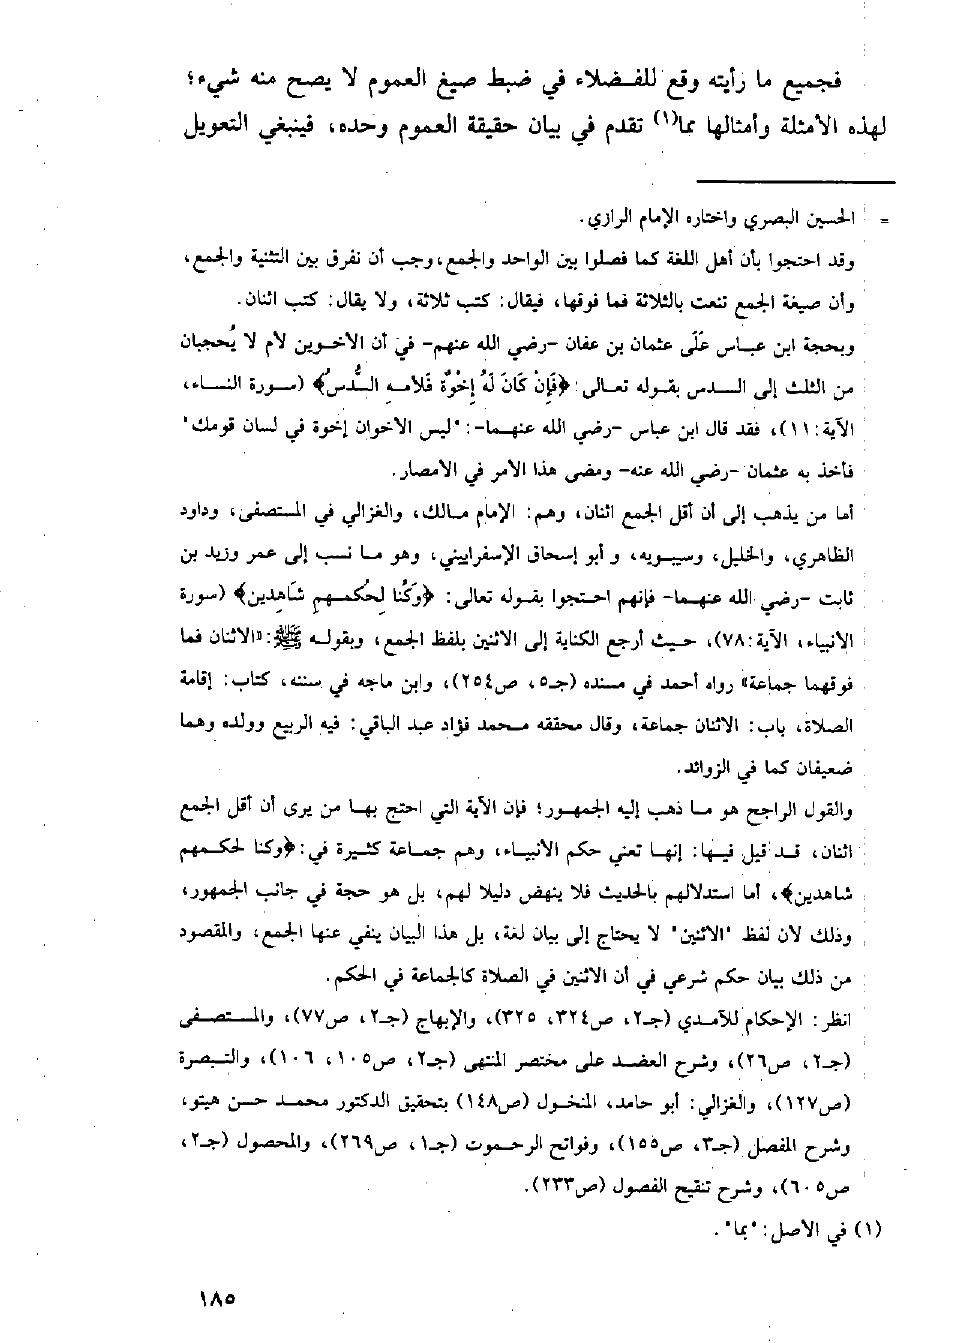 فجميع ما رأيته وقع للفضلاء في ضبط صيغ العموم لا يصح منه شيء؛
لهذه الأمثلة وأمثالها مما(١) تقدم في بيان حقيقة العموم وحده، فينبغي التعويل
= الحسين البصري واختاره الإمام الرازي.
وقد احتجوا بأن أهل اللغة كما فصلوا بين الواحد والجمع، وجب أن نفرق بين التثنية والجمع،
وأن صيغة الجمع تنعت بالثلاثة فما فوقها، فيقال: كتب ثلاثة، ولا يقال: كتب اثنان.
وبحجة ابن عباس عَلَى عثمان بن عفان -رضي الله عنهم- في أن الأخوين لأم لا يُحجبان
من الثلث إلى السدس بقوله تعالى: ﴿فَإِنْ كَانَ لَهُ إِخْوَةٌ فَلأمِهِ السُّدُسُ﴾ (سورة النساء،
الآية: ١١)، فقد قال ابن عباس -رضي الله عنهما-: "ليس الأخوان إخوة في لسان قومك"
فأخذ به عثمان -رضي الله عنه- ومضى هذا الأمر في الأمصار.
أما من يذهب إلى أن أقل الجمع اثنان، وهم: الإمام مالك، والغزالي في المستصفى، وداود
الظاهري، والخليل، وسيبويه، و أبو إسحاق الإسفراييني، وهو ما نسب إلى عمر وزيد بن
ثابت -رضي الله عنهما- فإنهم احتجوا بقوله تعالى: ﴿وَكُنَّا لِحُكْمِهِمْ شَاهِدِين﴾ (سورة
الأنبياء، الآية: ٧٨)، حيث أرجع الكناية إلى الاثنين بلفظ الجمع، وبقوله ﷺ: «الاثنان فما
فوقهما جماعة» رواه أحمد في مسنده (جـ٥، ص٢٥٤)، وابن ماجه في سننه، كتاب: إقامة
الصلاة، باب: الاثنان جماعة، وقال محققه محمد فؤاد عبد الباقي: فيه الربيع وولده وهما
ضعيفان كما في الزوائد.
والقول الراجح هو ما ذهب إليه الجمهور؛ فإن الآية التي احتج بها من يرى أن أقل الجمع
اثنان، قد قيل فيها: إنها تعني حكم الأنبياء، وهم جماعة كثيرة في: ﴿وكنا لحكمهم
شاهدين﴾، أما استدلالهم بالحديث فلا ينهض دليلا لهم، بل هو حجة في جانب الجمهور،
وذلك لأن لفظ "الاثنين" لا يحتاج إلى بيان لغة، بل هذا البيان ينفي عنها الجمع، والمقصود
من ذلك بيان حكم شرعي في أن الاثنين في الصلاة كالجماعة في الحكم.
انظر: الإحكام للآمدي (جـ٢، ص٣٢٤، ٣٢٥)، والإبهاج (جـ٢، ص٧٧)، والمستصفى
(جـ٢، ص٢٦)، وشرح العضد على مختصر المنتهى (جـ٢، ص١٠٥، ١٠٦)، والتبصرة
(ص١٢٧)، والغزالي: أبو حامد، المنخول (ص١٤٨) بتحقيق الدكتور محمد حسن هيتو،
وشرح المفصل (جـ٣، ص١٥٥)، وفواتح الرحموت (جـ١، ص٢٦٩)، والمحصول (جـ٢،
ص٦٠٥)، وشرح تنقيح الفصول (ص٢٣٣).
(١) في الأصل: "بما".
١٨٥